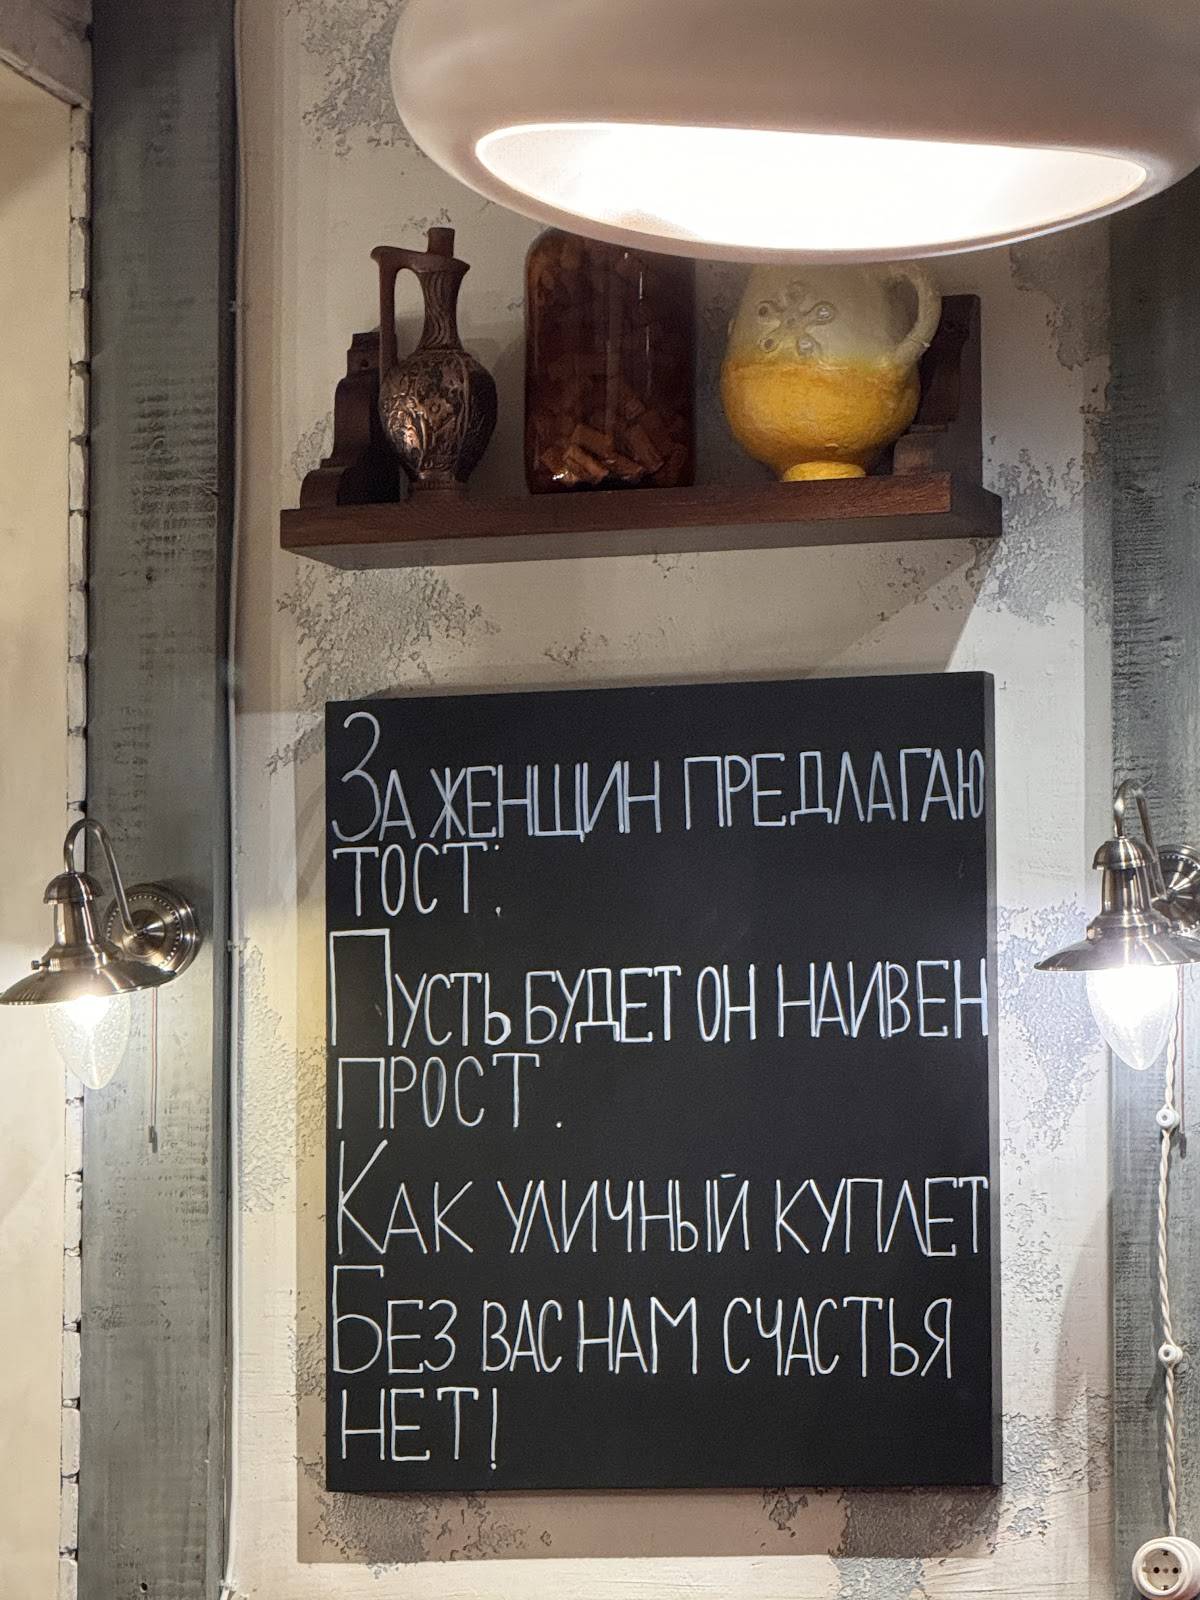 За женщин предлагаю
тост:
Пусть будет он наивен
прост.
Как уличный куплет
Без вас нам счастья
нет!